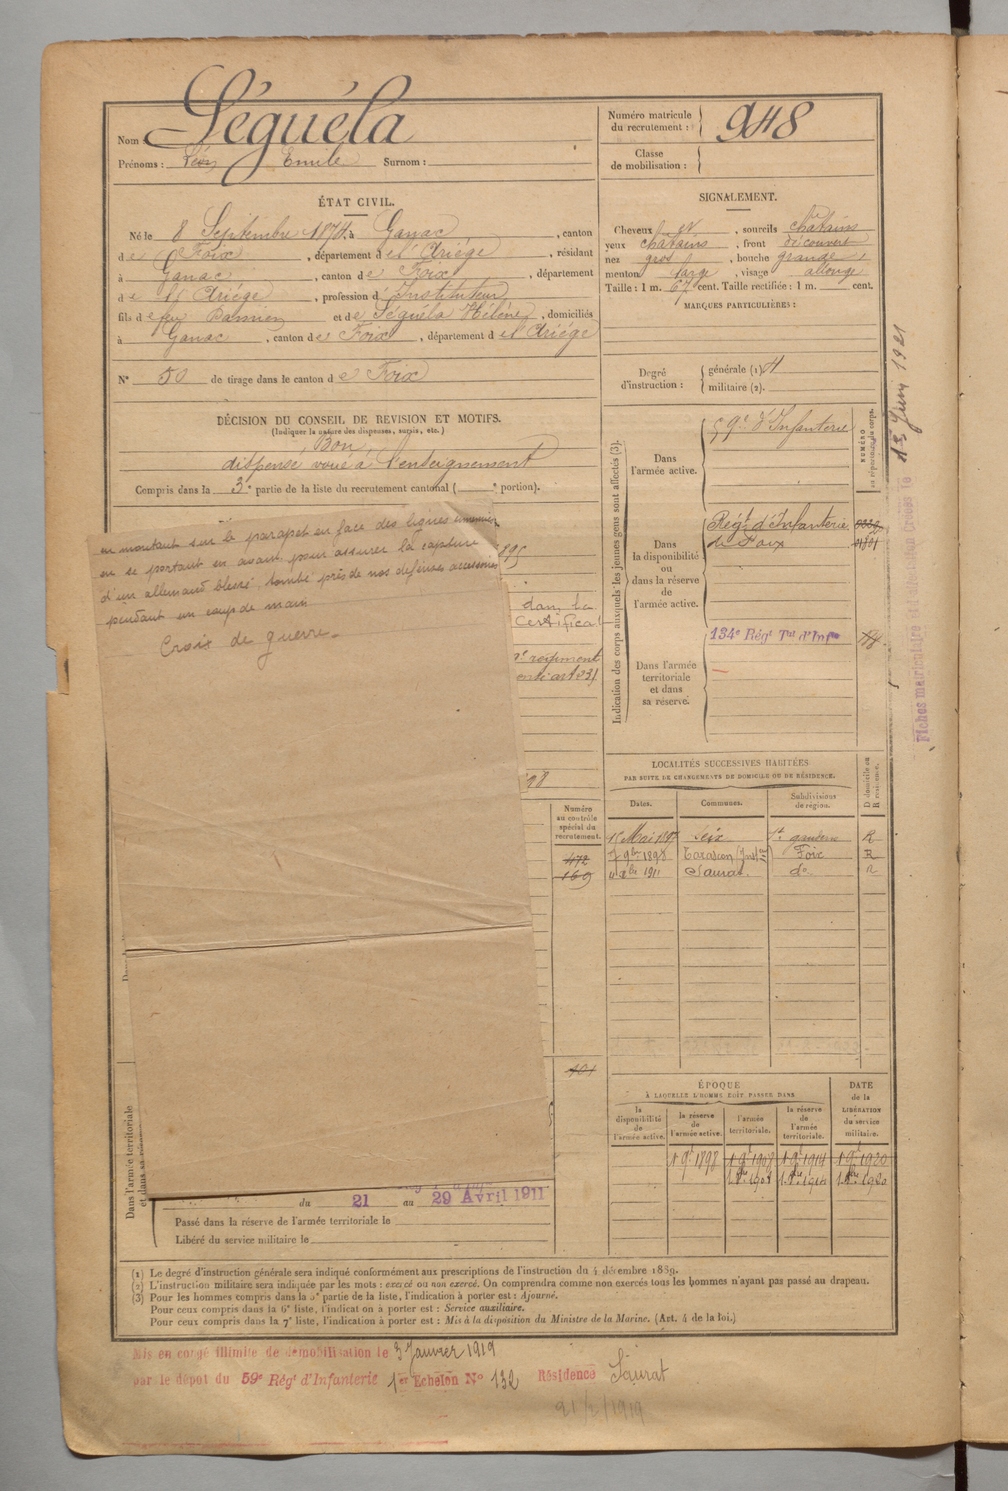 Nom : Séguéla
Prénoms : Léon Emile Surnom :
Numéro matricule du recrutement : 948
Classe de mobilisation :
ÉTAT CIVIL.
Né le 8 Septembre 1874 à Ganac, canton
de Foix, département de l'Ariége, résidant
à Ganac, canton de Foix, département
de l'Ariége, profession d'Instituteur
fils de feu Damien et de Séguéla Hélène, domiciliés
à Ganac, canton de Foix, département de l'Ariége
N° 50 de tirage dans le canton de Foix
SIGNALEMENT.
Cheveux, sourcils châtains
yeux châtains, front découvert
nez gros, bouche grande,
menton large, visage allongé
Taille : 1 m. 67 cent. Taille rectifiée : 1 m. cent.
MARQUES PARTICULIÈRES :
Degré d'instruction : générale (1)
militaire (2).
DÉCISION DU CONSEIL DE REVISION ET MOTIFS.
(Indiquer la nature des dispenses, sursis, etc.)
Bon,
dispensé, voué à l'enseignement
Compris dans la 3e partie de la liste du recrutement cantonal ( e portion).
en montant sur le parapet en face des lignes ennemies,
en se portant en avant pour assurer la capture
d'un allemand blessé, tombé près de nos défenses accessoires
pendant un coup de main
Croix de guerre.
1895
dans la
Certificat
régiment
98
Indication des corps auxquels les jeunes gens sont affectés (3).
NUMÉRO au répertoire du corps.
Dans l'armée active.
59e d'Infanterie
Dans la disponibilité ou dans la réserve de l'armée active.
Régt d'Infanterie
de Foix
Dans l'armée territoriale et dans sa réserve.
134e Régt Tal d'Infie
LOCALITÉS SUCCESSIVES HABITÉES
PAR SUITE DE CHANGEMENTS DE DOMICILE OU DE RÉSIDENCE.
D domicile ou R résidence.
Dates. Communes. Subdivisions de région.
15 Mai 1897 Seix St gaudens R
7 9bre 1898 Tarascon Foix R
1911 Saurat do R
Numéro au contrôle spécial du recrutement.
472
169
101
ÉPOQUE
À LAQUELLE L'HOMME DOIT PASSER DANS
DATE de la LIBÉRATION du service militaire.
la disponibilité de l'armée active.
la réserve de l'armée active.
l'armée territoriale.
la réserve de l'armée territoriale.
1 9bre 1898 1 9bre 1908 1 9bre 1914 1 9bre 1920
Dans l'armée territoriale et dans sa réserve
du 21 au 29 Avril 1911
Passé dans la réserve de l'armée territoriale le
Libéré du service militaire le
(1) Le degré d'instruction générale sera indiqué conformément aux prescriptions de l'instruction du 4 décembre 1889.
(2) L'instruction militaire sera indiquée par les mots : exercé ou non exercé. On comprendra comme non exercés tous les hommes n'ayant pas passé au drapeau.
(3) Pour les hommes compris dans la 5e partie de la liste, l'indication à porter est : Ajourné.
Pour ceux compris dans la 6e liste, l'indication à porter est : Service auxiliaire.
Pour ceux compris dans la 7e liste, l'indication à porter est : Mis à la disposition du Ministre de la Marine. (Art. 4 de la loi.)
Mis en congé illimité de démobilisation le 3 Janvier 1919
par le dépôt du 59e Régt d'Infanterie 1er Echelon N° 132 Résidence Saurat
Fiches matriculaire et d'élection Créées le 15 Juin 1921